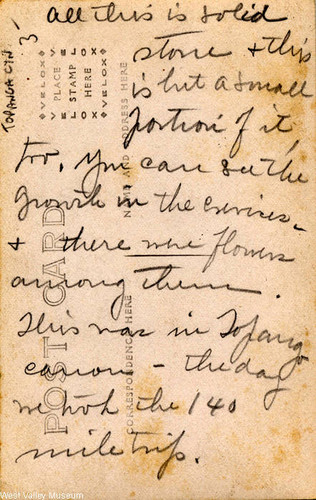 all this is solid
stone + this
is but a small
portion of it,
too. You can see the
growth in the crevices -
+ there were flowers
among them.
This was in Topango
canon - the day
we took the 140
mile trip.
TOPANGA CYN
3
VELOX
VELOX
PLACE
STAMP
HERE
VELOX
VELOX
NAME AND ADDRESS HERE
POST CARD
CORRESPONDENCE HERE
West Valley Museum